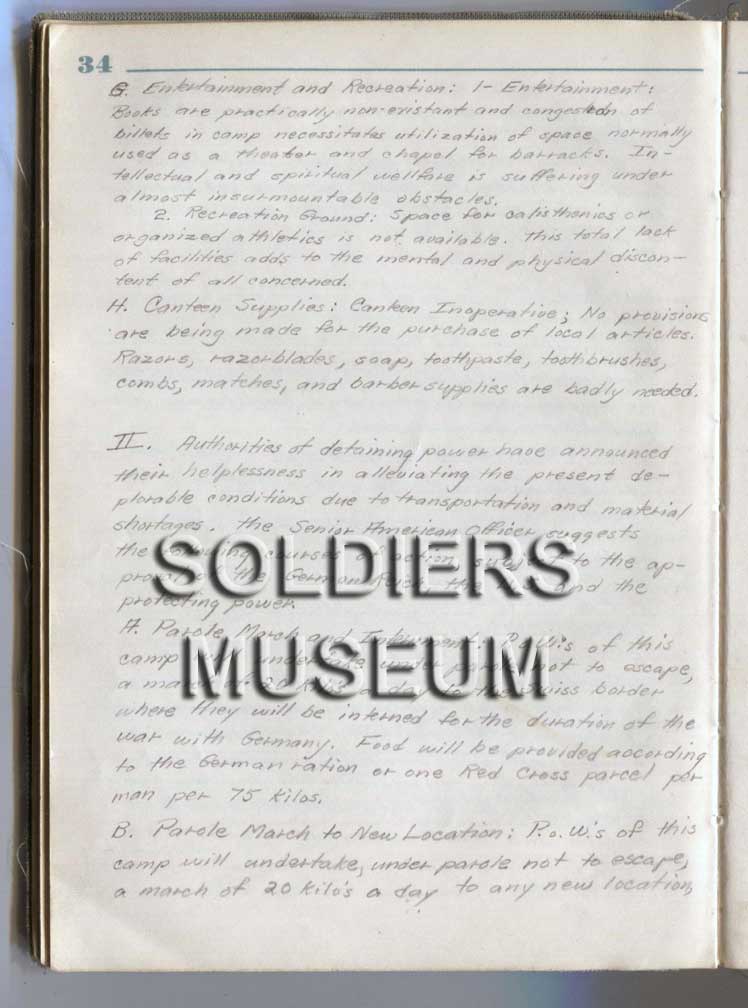 34
G. Entertainment and Recreation: 1- Entertainment:
Books are practically non-existant and congestion of
billets in camp necessitates utilization of space normally
used as a theater and chapel for barracks. In-
tellectual and spiritual wellfare is suffering under
almost insurmountable obstacles.
2. Recreation Ground: Space for calisthenics or
organized athletics is not available. This total lack
of facilities adds to the mental and physical discon-
tent of all concerned.
H. Canteen Supplies: Canteen Inoperative; No provisions
are being made for the purchase of local articles.
Razors, razorblades, soap, toothpaste, toothbrushes,
combs, matches, and barber supplies are badly needed.
II. Authorities of detaining power have announced
their helplessness in alleviating the present de-
plorable conditions due to transportation and material
shortages. The Senior American Officer suggests
the following courses of action, subject to the ap-
proval of the German Reich, the and the
protecting power.
SOLDIERS
MUSEUM
A. Parole March and Internment: P.o.W.'s of this
camp will undertake under parole not to escape,
a march of 20 kilo's a day to the Swiss border
where they will be interned for the duration of the
war with Germany. Food will be provided according
to the German ration or one Red Cross parcel per
man per 75 Kilos.
B. Parole March to New Location: P.o.W.'s of this
camp will undertake, under parole not to escape,
a march of 20 kilo's a day to any new location,